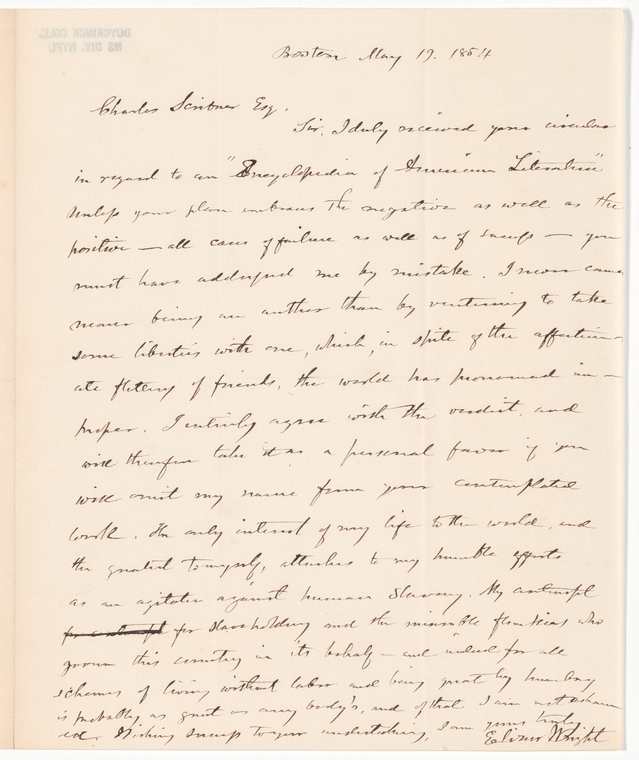 DUYCKINCK COLL.
MS DIV. NYPL
Boston May 19. 1854
Charles Scribner Esq.
Sir, I duly received your circular
in regard to an "Encyclopedia of American Literature".
Unless your plan embraces the negative as well as the
positive — all cases of failure as well as of success — you
must have addressed me by mistake. I never came
nearer being an author than by venturing to take
some liberties with one, which, in spite of the affection-
ate flattery of friends, the world has pronounced im-
proper. I entirely agree with the verdict, and
will therefore take it as a personal favor if you
will omit my name from your contemplated
work. The only interest of my life to the world, and
the greatest to myself, attaches to my humble efforts
as an agitator against human Slavery. My contempt
for contempt for slaveholding and the miserable flunkies who
govern this country in its behalf — and indeed for all
schemes of living without labor and being great by humbug
is probably as great as any body's, and of that I am not asham-
ed. Wishing success to your undertaking, I am yours truly,
Elizur Wright